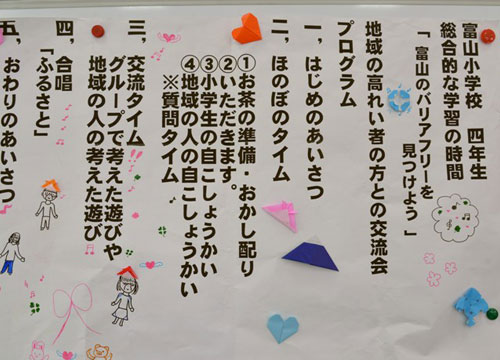 富山小学校 四年生
総合的な学習の時間
「富山のバリアフリーを
見つけよう」
地域の高れい者の方との交流会
プログラム
一，はじめのあいさつ
二，ほのぼのタイム
①お茶の準備・おかし配り
②いただきます。
③小学生の自こしょうかい
④地域の人の自こしょうかい
※質問タイム
三，交流タイム
グループで考えた遊びや
地域の人の考えた遊び
四，合唱
「ふるさと」
五，おわりのあいさつ